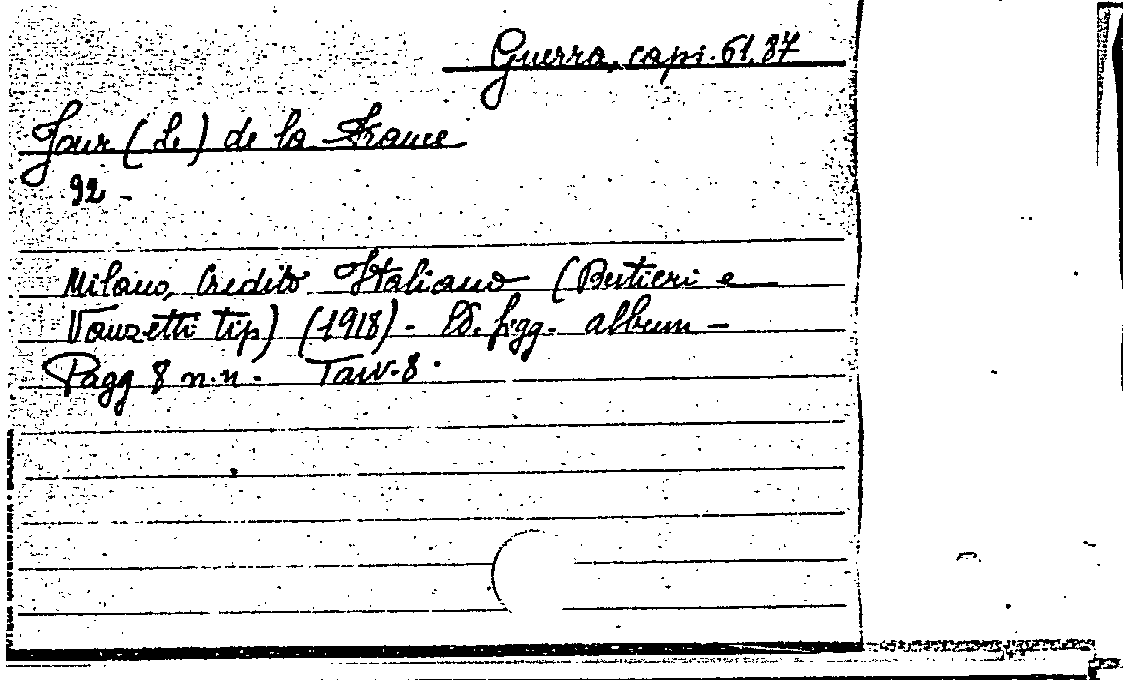 Guerra, caps. 61.87
Jour (Le) de la France
92 -
Milano, Credito Italiano (Bertieri e
Vanzetti tip) (1918) - 8. figg. album -
Pagg 8 n.n. - Tavv. 8.